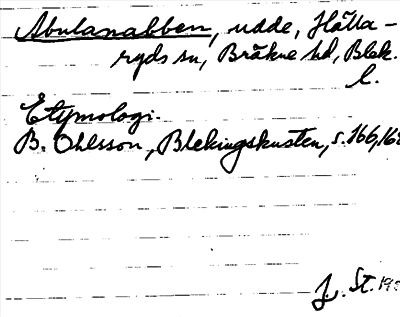 Abulanabben, udde, Hälla-
ryds sn, Bräkne hd, Blek.
l.
Etymologi.
B. Ohlsson, Blekingskusten, s. 166, 168
J. St. 19